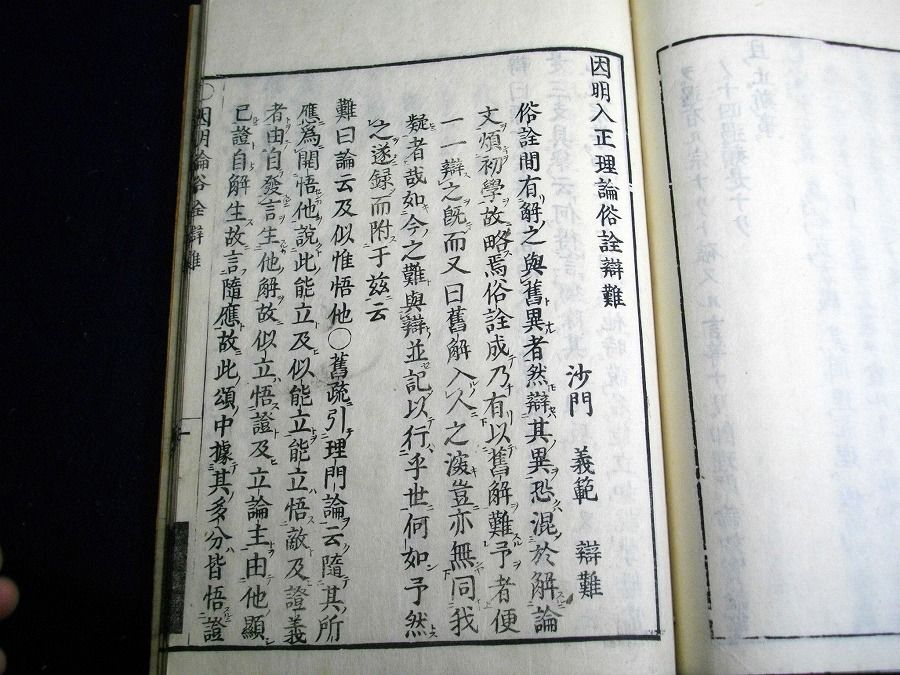 因明入正理論俗詮辯難
沙門 義範 辯難
俗詮間有解之與舊異者然辯其異恐混於解論
文煩初學故略焉俗詮成乃有以舊解難予者便
一一辯之既而又曰舊解入人之深豈亦無同我
疑者哉如今之難與辯並記以行乎世何如予然
之遂録而附于茲云
難曰論云及似惟悟他〇舊疏引理門論云隨其所
應爲開悟他說此能立及似能立能立悟敵及證義
者由自發言生他解故似立悟證及立論主由他顯
已證自解生故言隨應故此頌中據其多分皆悟證
〇因明論俗詮辯難